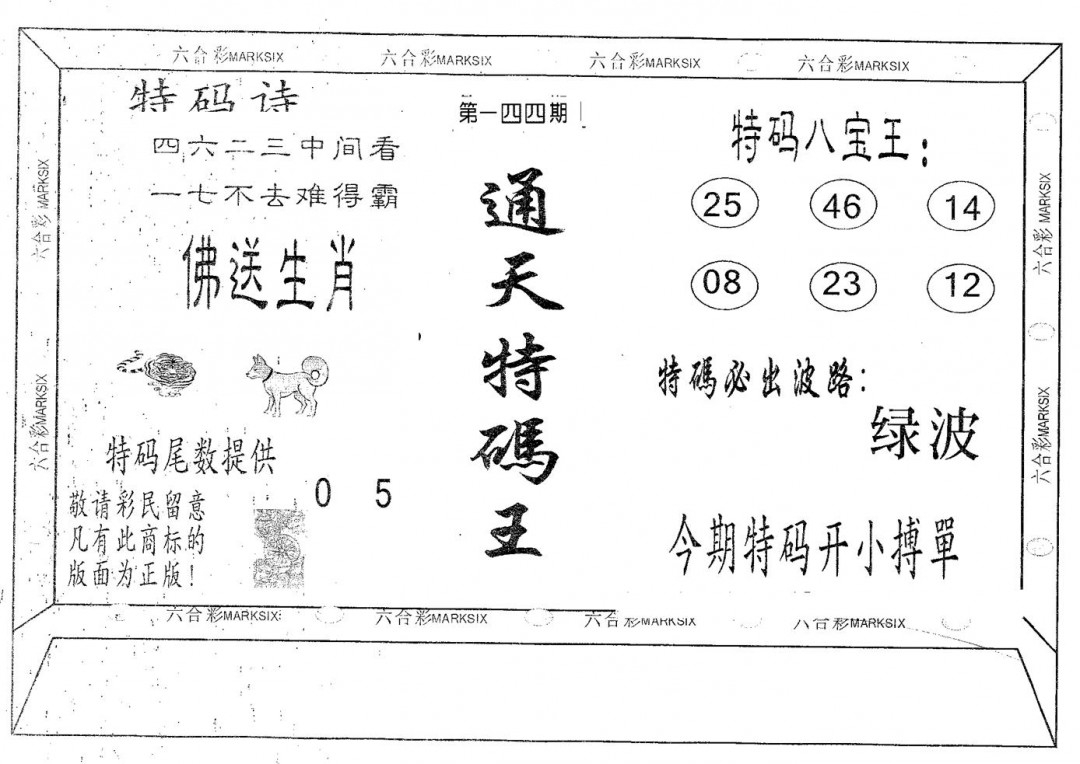 六合彩MARKSIX 六合彩MARKSIX 六合彩MARKSIX 六合彩MARKSIX
特码诗
四六二三中间看
一七不去难得霸
佛送生肖
特码尾数提供
0 5
敬请彩民留意
凡有此商标的
版面为正版!
第一四四期
通天特碼王
特码八宝王:
25 46 14
08 23 12
特碼必出波路:
绿波
今期特码开小搏單
六合彩MARKSIX
六合彩MARKSIX
六合彩MARKSIX
六合彩MARKSIX
六合彩MARKSIX 六合彩MARKSIX 六合彩MARKSIX 六合彩MARKSIX